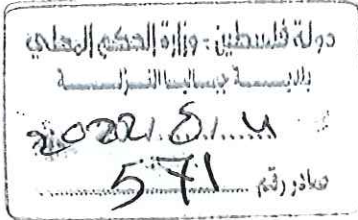 دولة فلسطين - وزارة الحكم المحلي
بلديـــة جباليا النـزلـــة
صادر رقم 571